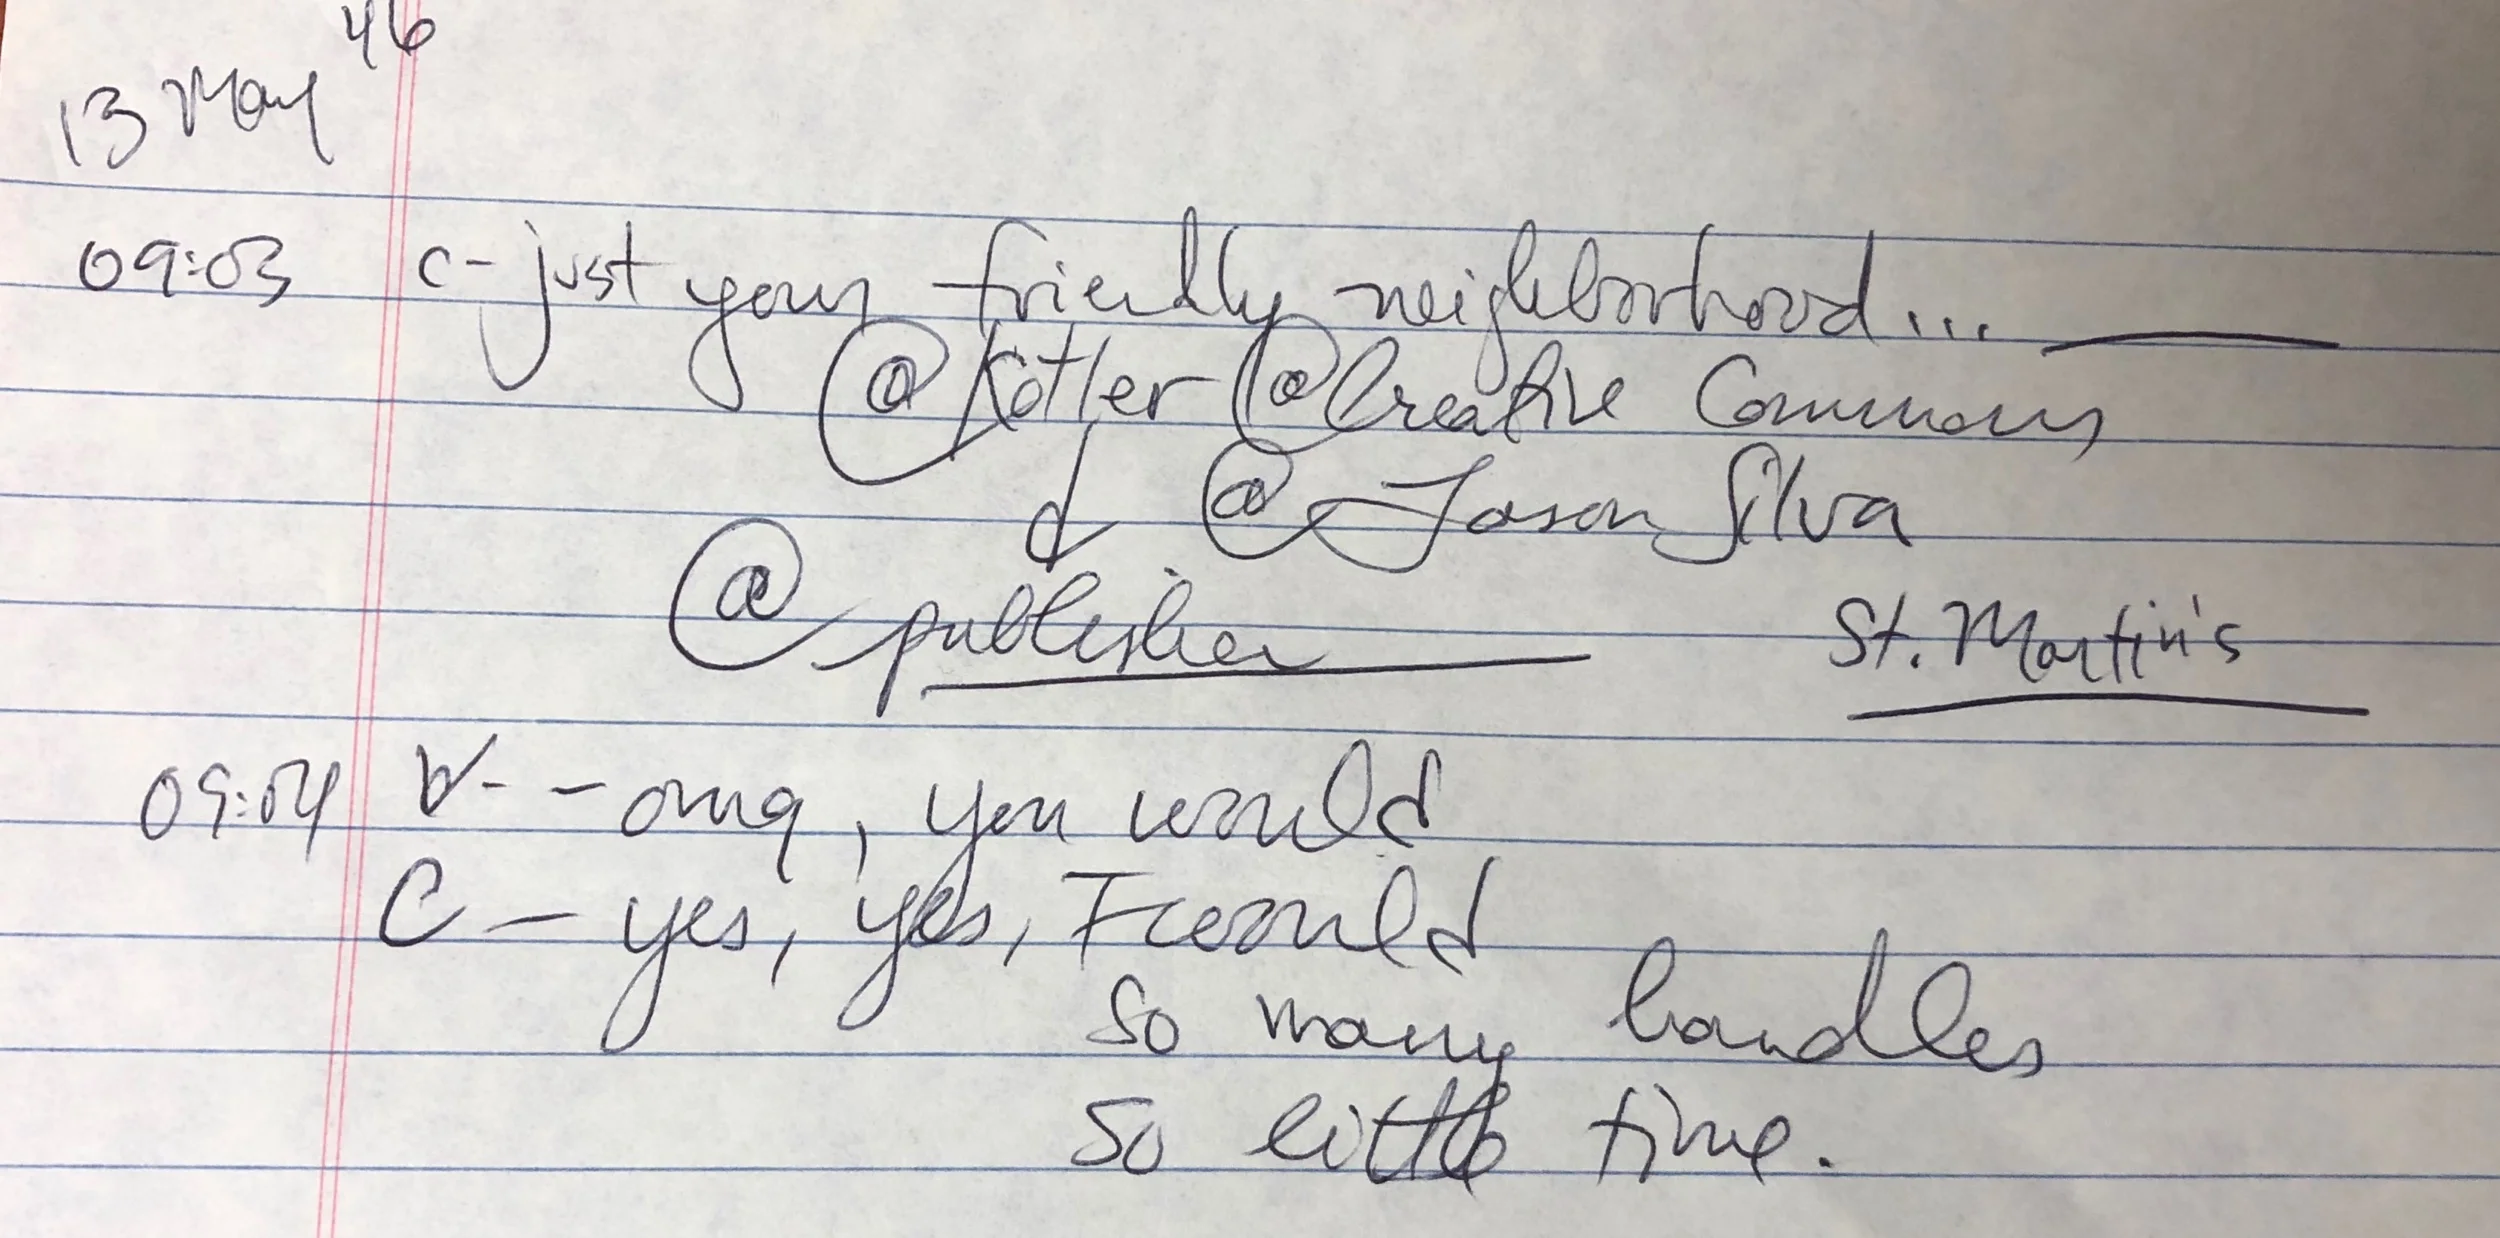 46
13 May
09:03 c- just your friendly neighborhood...
@Kotler @Creative Commons
@Jason Silva
@publisher St. Martin's
09:04 V- - omg, you would
C - yes, yes, I would
so many handles
so little time.